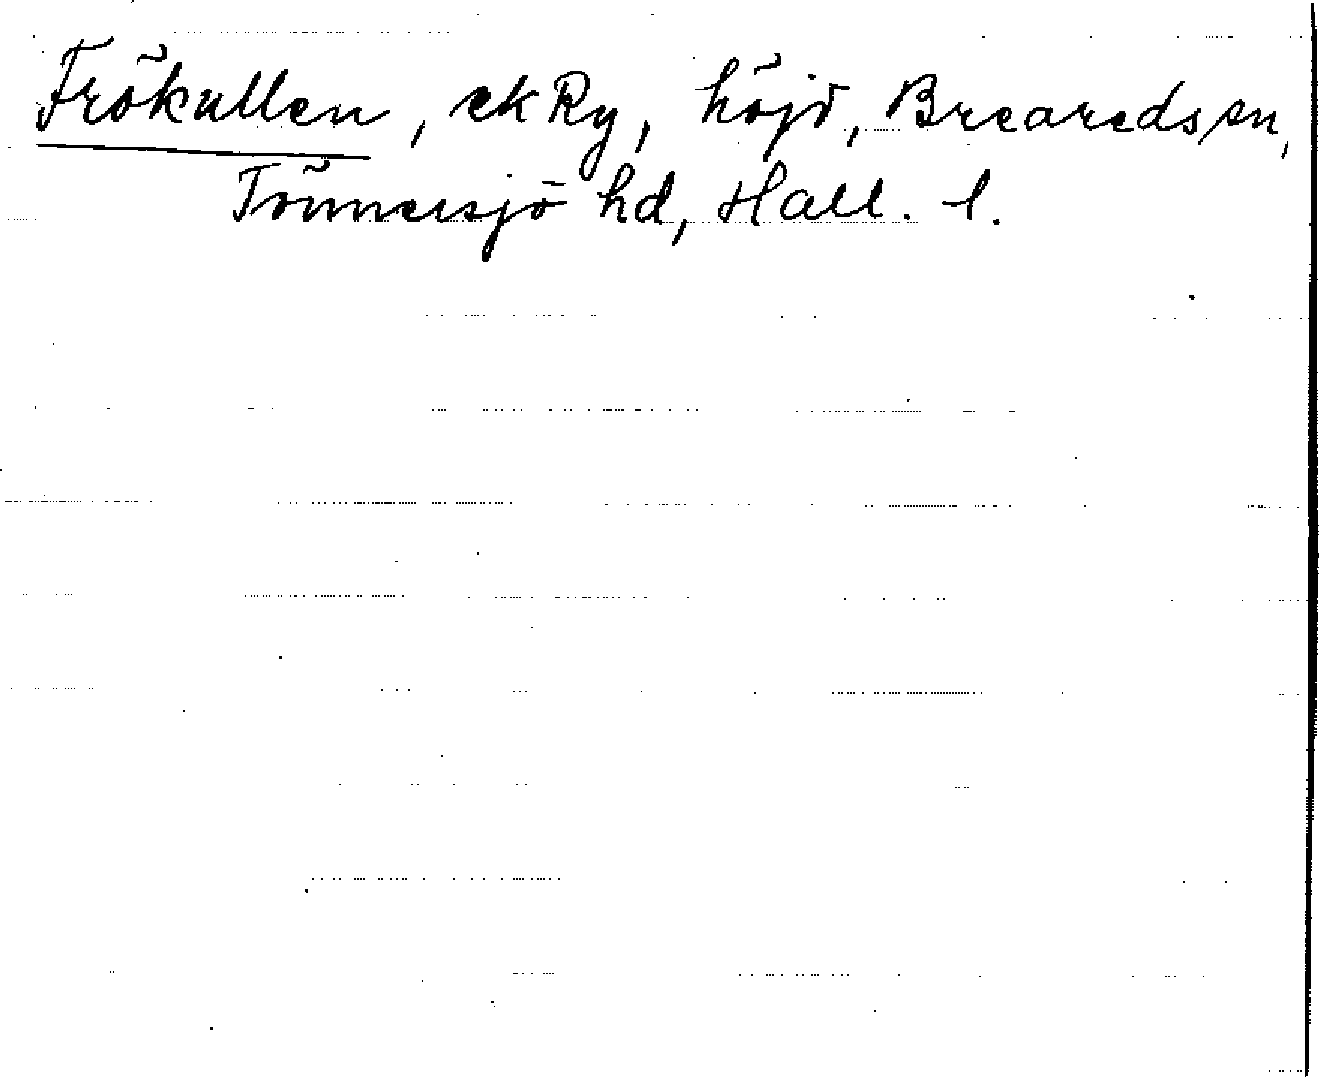 Frökullen, ek Ry, höjd, Breareds sn,
Tönnersjö hd, Hall. l.